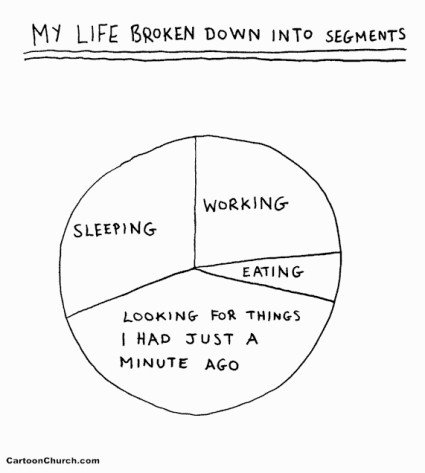 MY LIFE BROKEN DOWN INTO SEGMENTS
SLEEPING
WORKING
EATING
LOOKING FOR THINGS
I HAD JUST A
MINUTE AGO
CartoonChurch.com